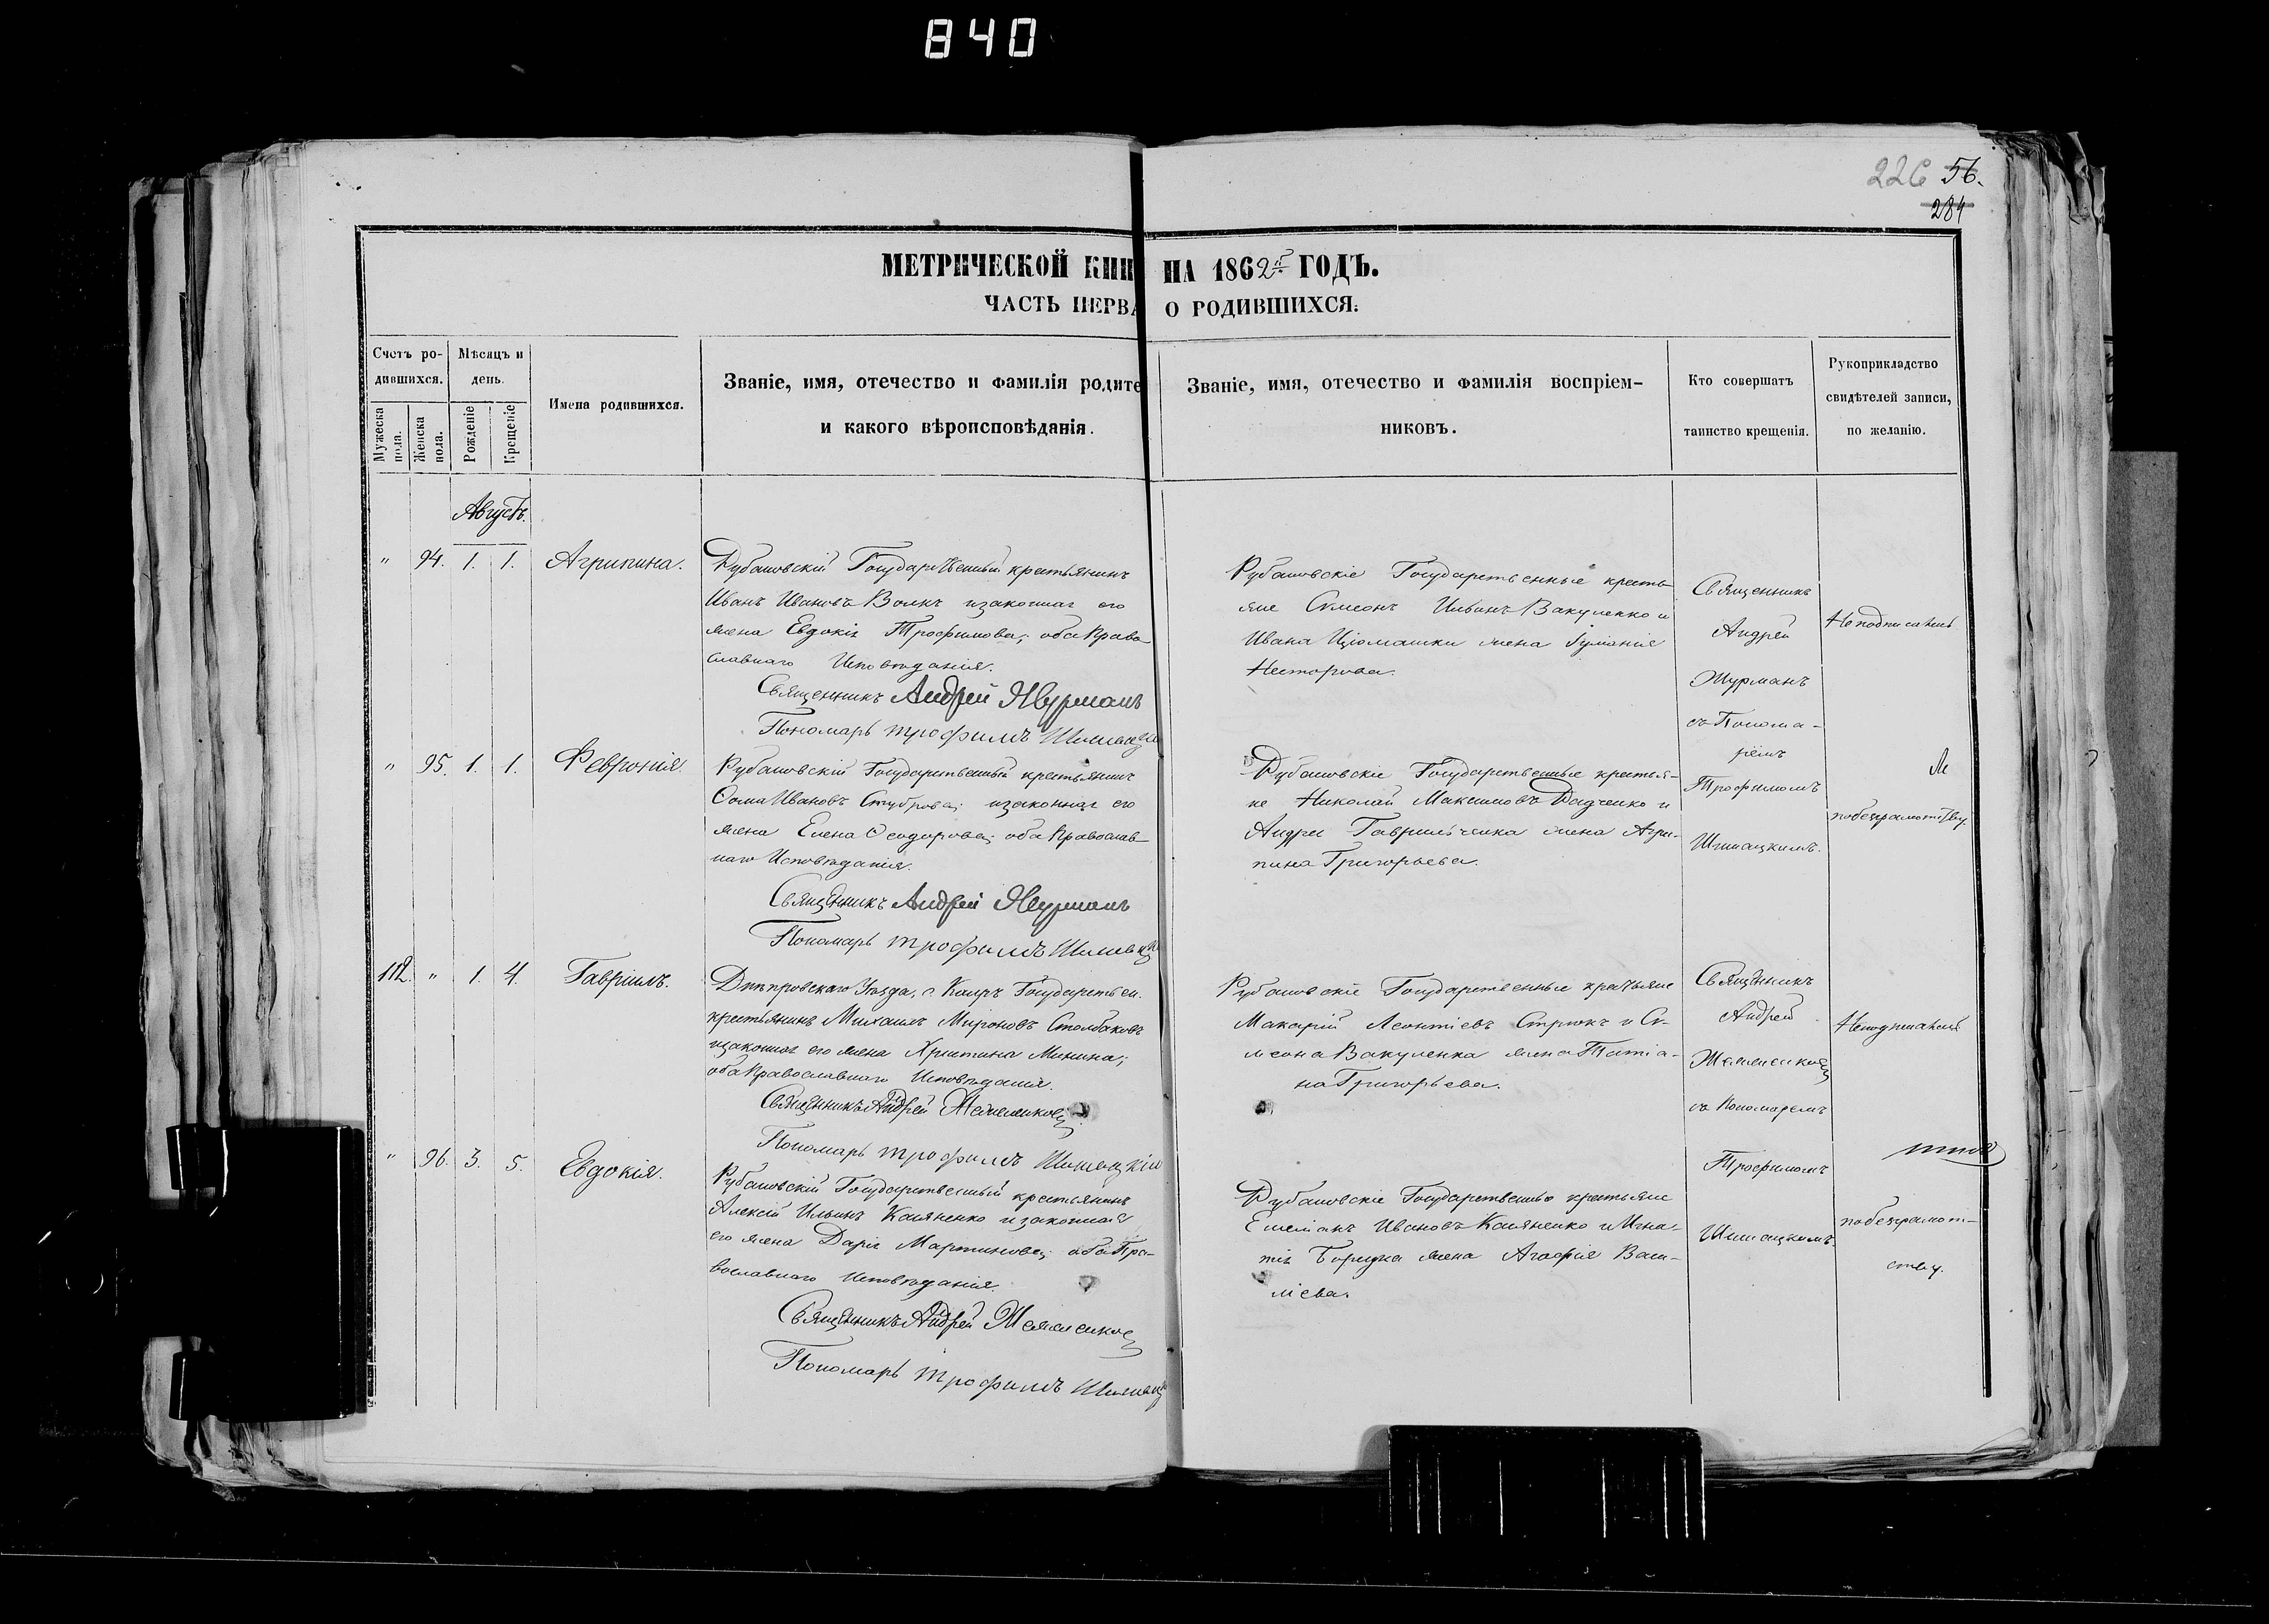 840
226 56.
284
МЕТРИЧЕСКОЙ КНИ НА 1862й ГОДЪ.
ЧАСТЬ ПЕРВА О РОДИВШИХСЯ.
Счетъ ро-
дившихся.
Мужеска
пола.
Женска
пола.
Мѣсяцъ и
день.
Рожденіе
Крещеніе
Имена родившихся.
Званіе, имя, отечество и фамилія родите
и какого вѣроисповѣданія.
Званіе, имя, отечество и фамилія воспріем-
никовъ.
Кто совершатъ
таинство крещенія.
Рукоприкладство
свидѣтелей записи,
по желанію.
Августъ.
" 94. 1. 1. Агрипина.
Рубановскій Государственный крестьянинъ
Иванъ Ивановъ Волкъ изаконная его
жена Евдокія Трофимова; оба Право
славнаго Исповѣданія.
Священникъ Андрей Журманъ
Пономарь Трофимъ
Рубановскіе Государственные кресть
яне Симеонъ Ильинъ Вакуленко и
Ивана жена
Несторова.
Священникъ
Андрей
Журманъ
съ Понома-
ремъ
Трофимомъ
Шишацкимъ.
" 95. 1. 1. Февронія.
Рубановскій Государственный крестьянинъ
Ѳома Ивановъ изаконная его
жена Елена Ѳеодорова; оба Православ
наго Исповѣданія.
Священникъ Андрей Журманъ
Пономарь Трофимъ
Рубановскіе Государственные крестья-
не Николай Максимовъ и
Андрея Гаврильченка жена Агри-
пина Григорьева.
112. " 1. 4. Гавріилъ.
Днѣпровскаго Уѣзда, с. Каиръ Государствен.
крестьянинъ Михаилъ Мироновъ Столбаковъ
изаконная его жена Христина Минина;
оба Православнаго Исповѣданія.
Священникъ Андрей
Пономарь Трофимъ Шишацкій
Рубановскіе Государственные крестьяне
Макарій Леонтіевъ и Си-
меона Вакуленка жена Татіа-
на Григорьева.
Священникъ
Андрей
съ Пономаремъ
Трофимомъ
Шишацкимъ.
" 96. 3. 5. Евдокія.
Рубановскій Государственный крестьянинъ
Алексій Ильинъ Касяненко изаконная
его жена Дарія Мартинова; оба Пра-
вославнаго Исповѣданія.
Священникъ Андрей
Пономарь Трофимъ
Рубановскіе Государственные крестьяне
Емеліанъ Ивановъ Касяненко и Игна-
тія жена Агафія Васи-
ліева.
побезграмот-
ству.